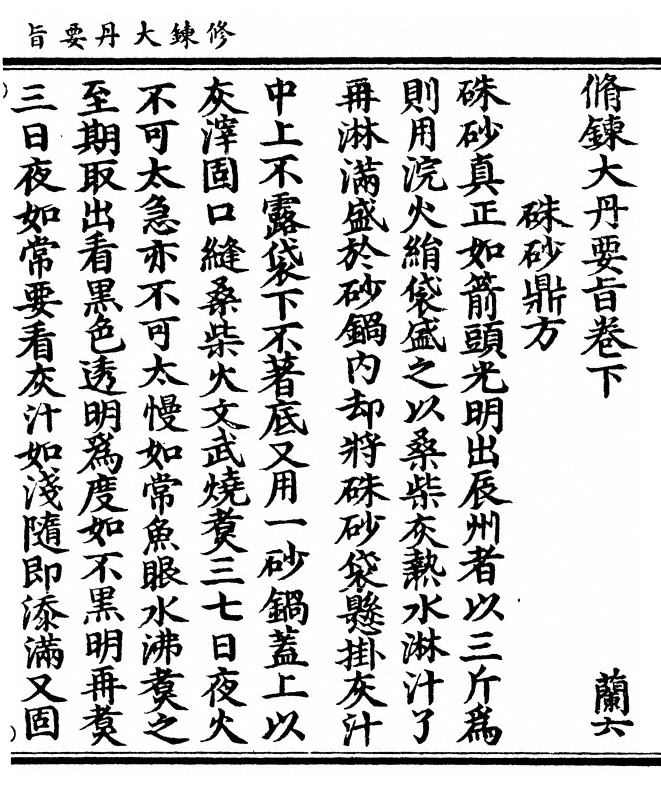 修鍊大丹要旨
脩鍊大丹要旨卷下　蘭六
硃砂鼎方
硃砂真正如箭頭光明出辰州者以三斤爲
則用浣火絹袋盛之以桑柴灰熱水淋汁了
再淋滿盛於砂鍋内却將硃砂袋懸掛灰汁
中上不露袋下不著底又用一砂鍋蓋上以
灰滓固口縫桑柴火文武燒煑三七日夜火
不可太急亦不可太慢如常魚眼水沸煑之
至期取出看黑色透明爲度如不黑明再煑
三日夜如常要看灰汁如淺隨即添滿又固